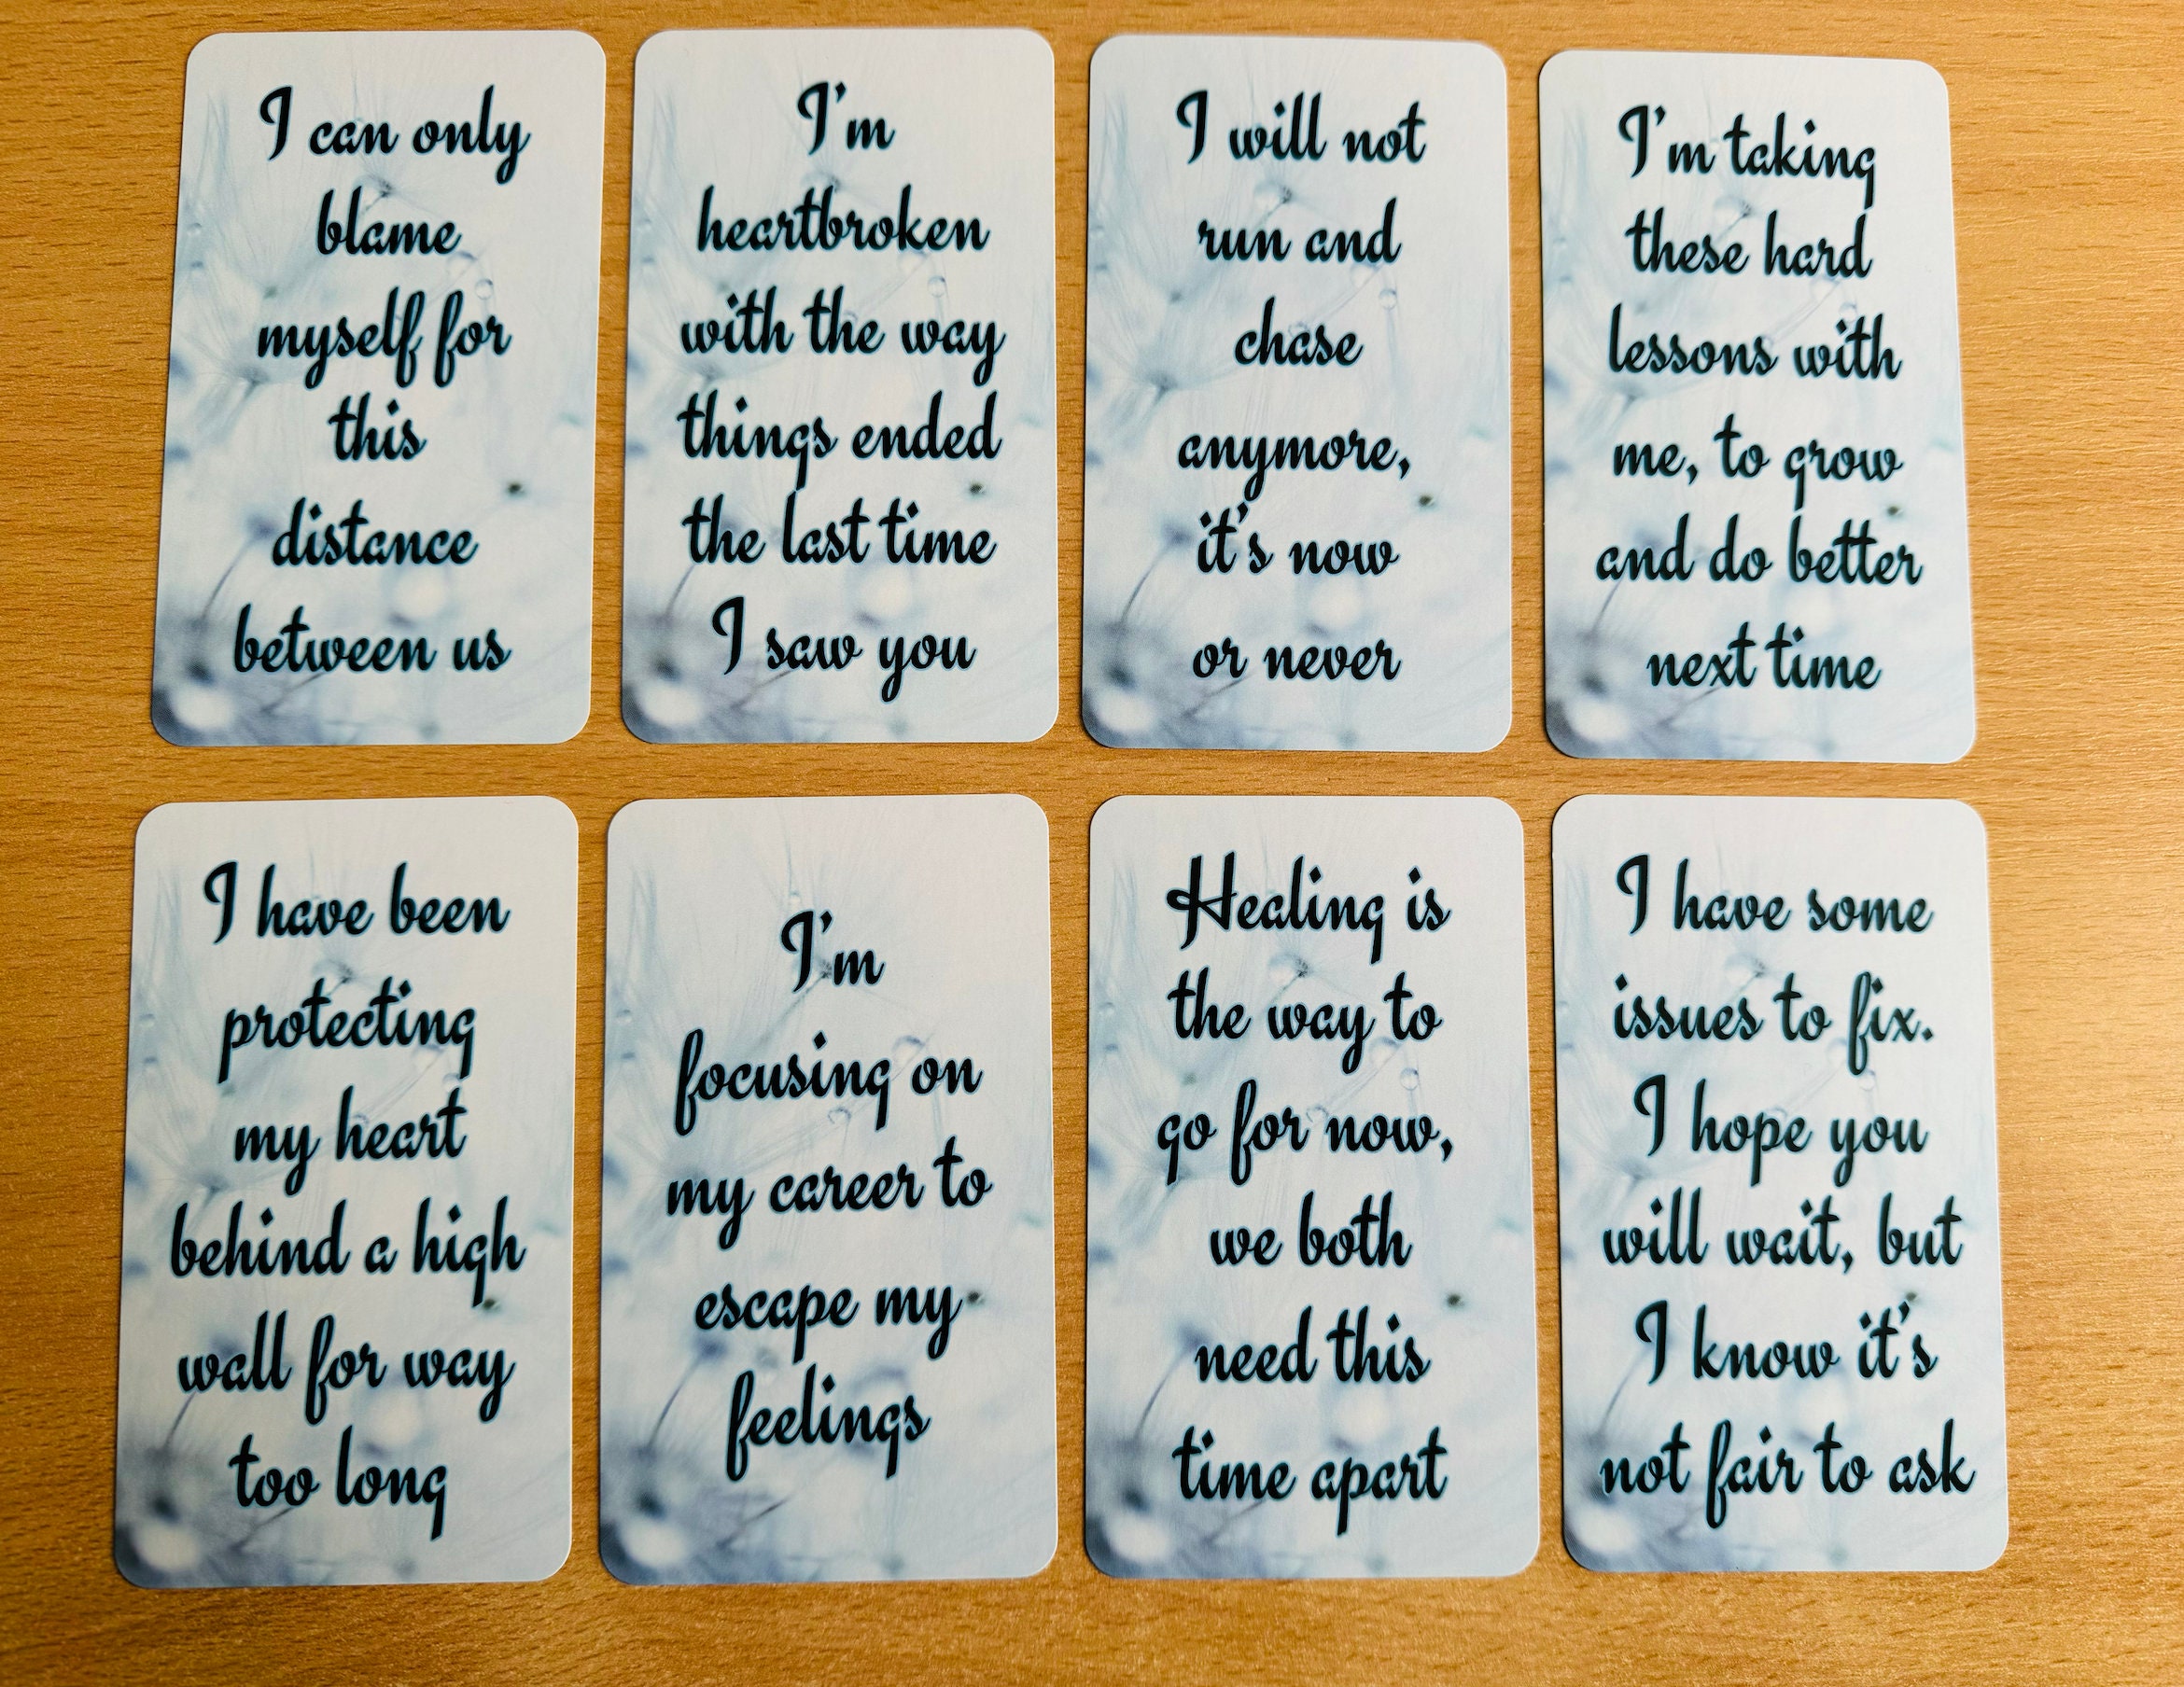 I can only
blame
myself for
this
distance
between us
I'm
heartbroken
with the way
things ended
the last time
I saw you
I will not
run and
chase
anymore,
it's now
or never
I'm taking
these hard
lessons with
me, to grow
and do better
next time
I have been
protecting
my heart
behind a high
wall for way
too long
I'm
focusing on
my career to
escape my
feelings
Healing is
the way to
go for now,
we both
need this
time apart
I have some
issues to fix.
I hope you
will wait, but
I know it's
not fair to ask